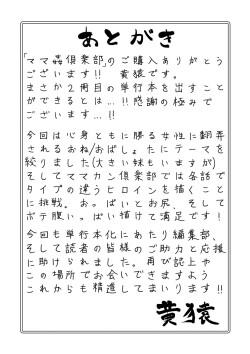 あとがき
「ママ姦倶楽部」のご購入ありがとう
ございます!! 黄猿です。
まさか2冊目の単行本を出すこと
ができるとは…!! 感謝の極みで
ございます…!!
今回は心身ともに勝る女性に翻弄
されるおね/おばしょたにテーマを
絞りました(大きい妹もいますが)
そしてママカン倶楽部では各話で
タイプの違うヒロインを描くこと
に挑戦。おっぱいとお尻、そして
ボテ腹いっぱい描けて満足です!
今回も単行本化にあたり編集部、
そして読者の皆様のご助力と応援
に助けられました。再び誌上や
この場所でお会いできますよう
これからも精進してまいります!!
黄猿